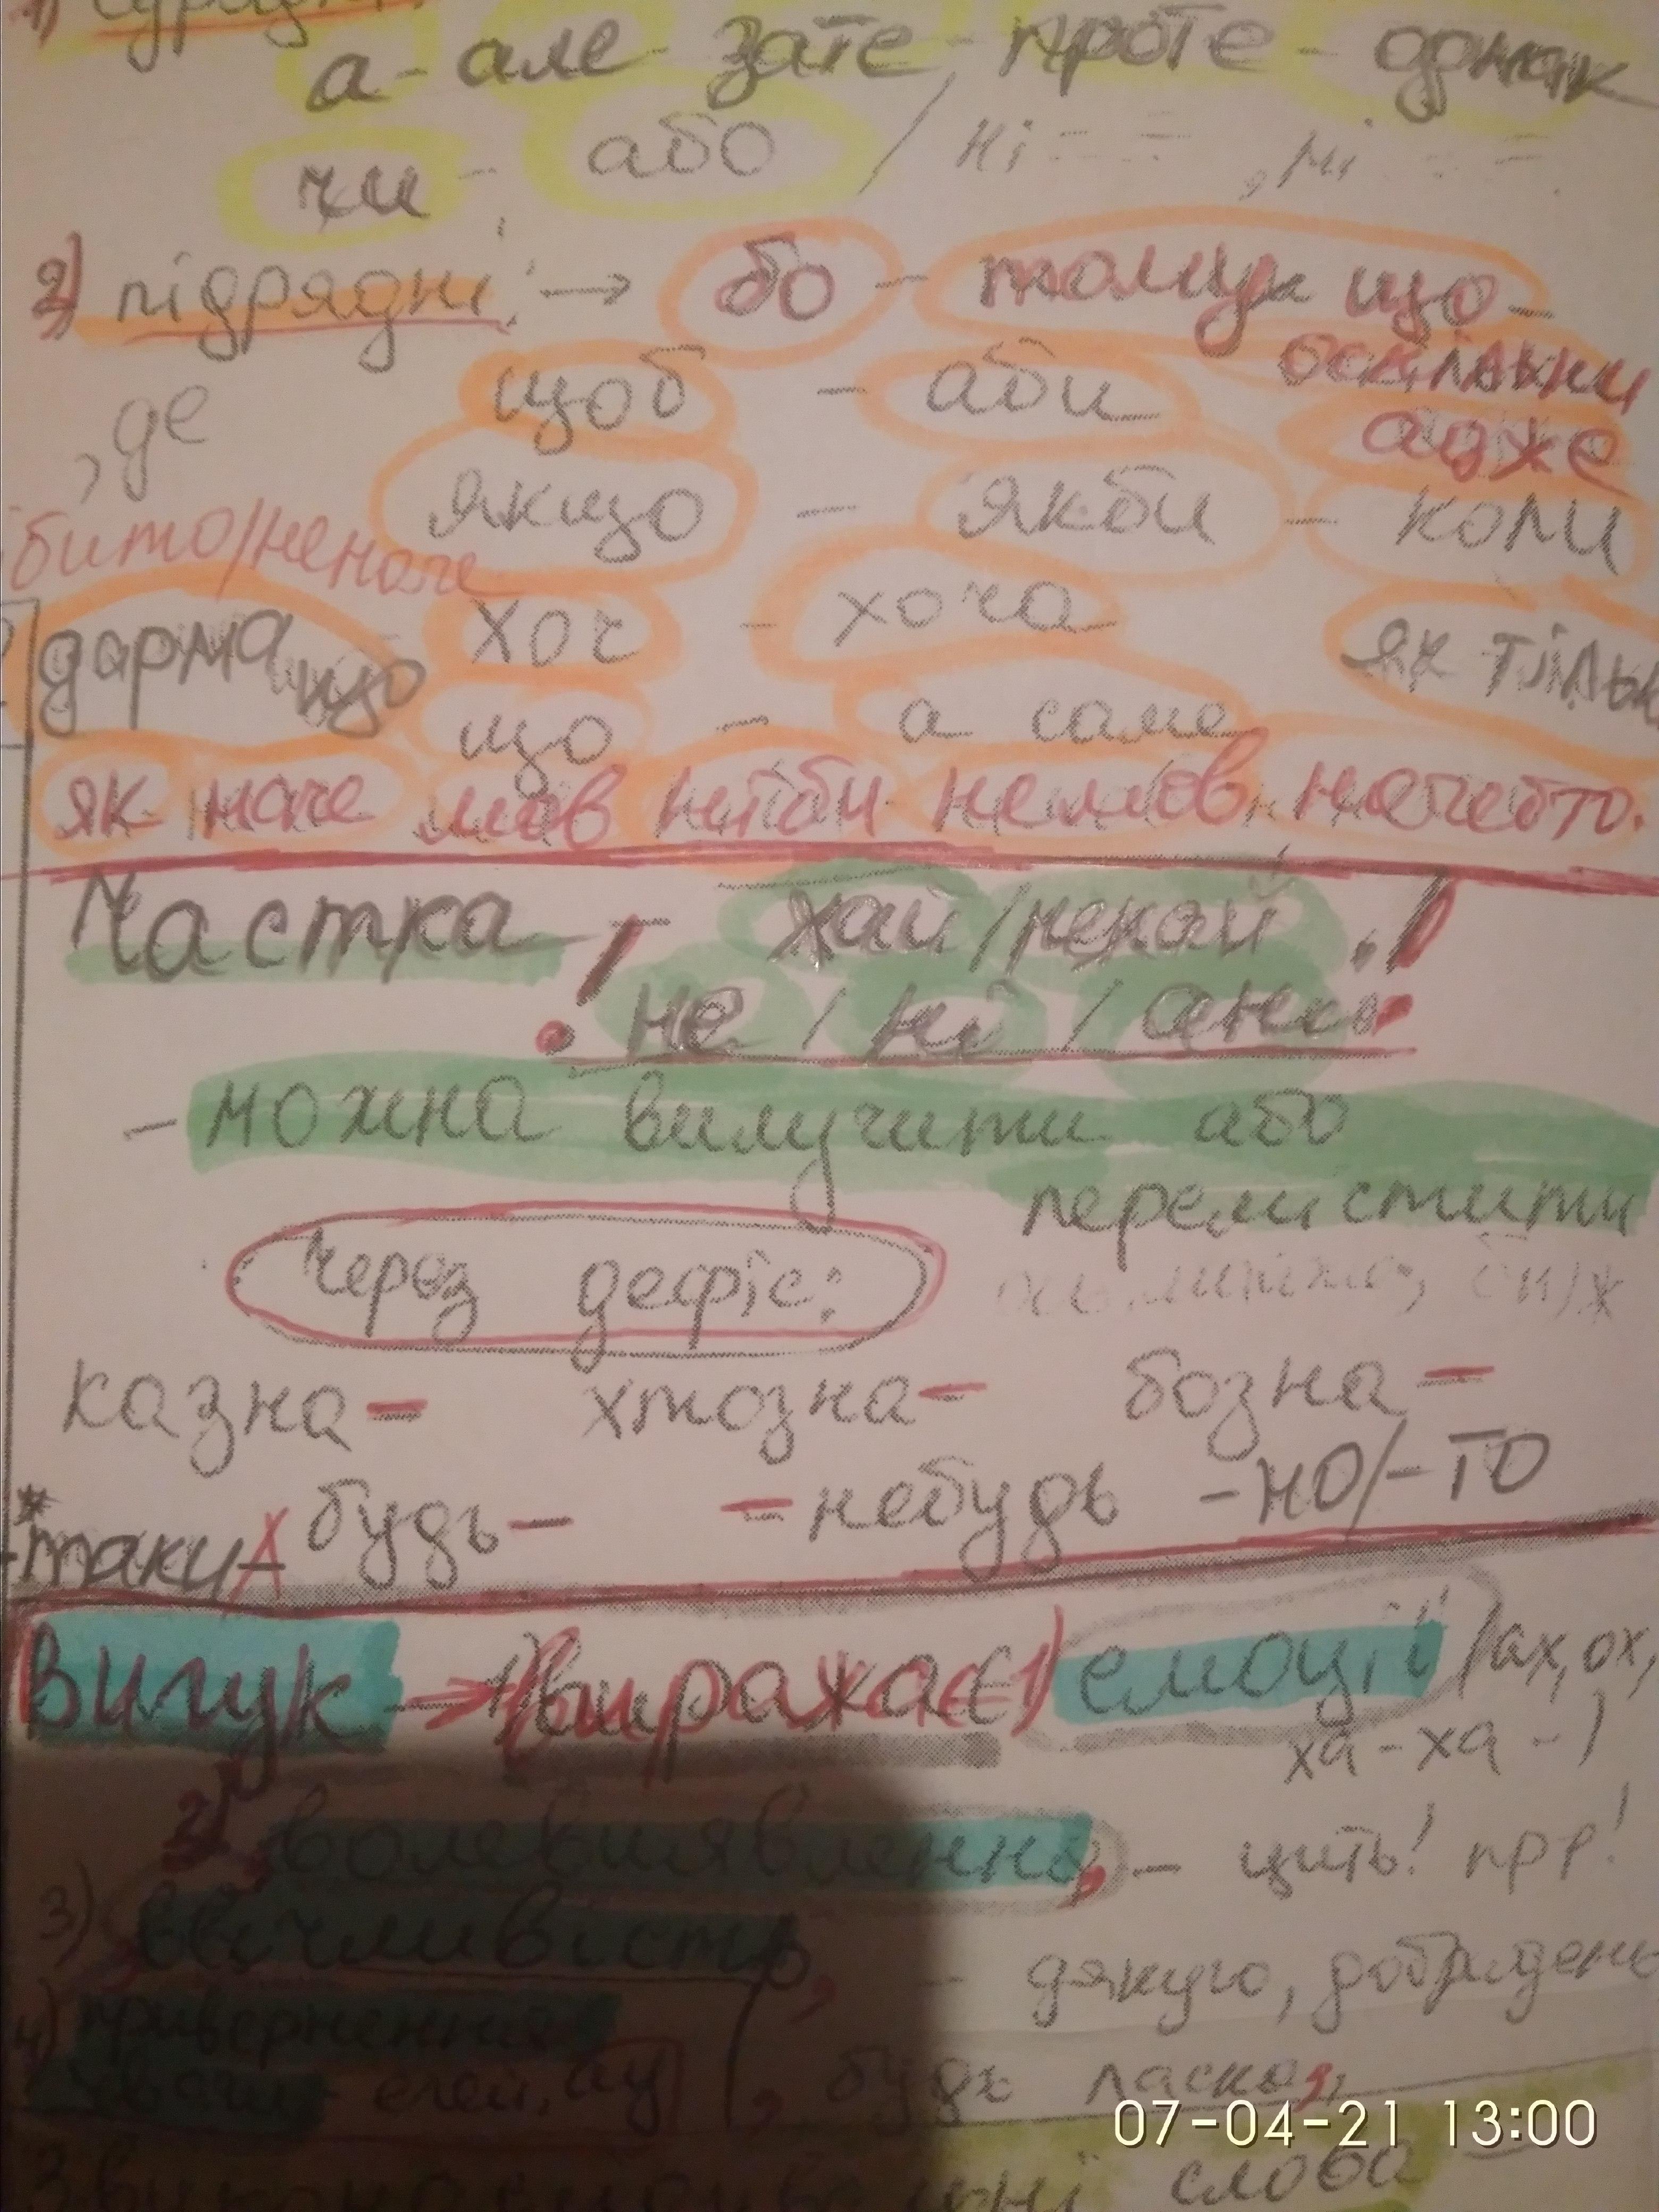 а - але - зате, - проте - однак
чи - або / ні - - - , ні - - - .
2) підрядні: → бо - тому що -
оскільки
щоб - аби
, де
адже
якщо - якби - коли
бито/неначе
дарма що
хоч - хоча
як тільк
що - а саме
як наче мов ніби немов начебто.
Частка - хай/нехай
не / ні / ані
- можна вилучити або
перемістити
Через дефіс:
казна- хтозна- бозна-
будь- -небудь -но/-то
*
-таки
Вигук → виражає 1) емоції /ах, ох,
ха-ха-/
2) волевиявлення, - цить! прр!
3) ввічливість, - дякую, добридень
4) привернення
уваги - елей, ау , будь ласка,
07-04-21 13:00
Звуконаслідувальні слова